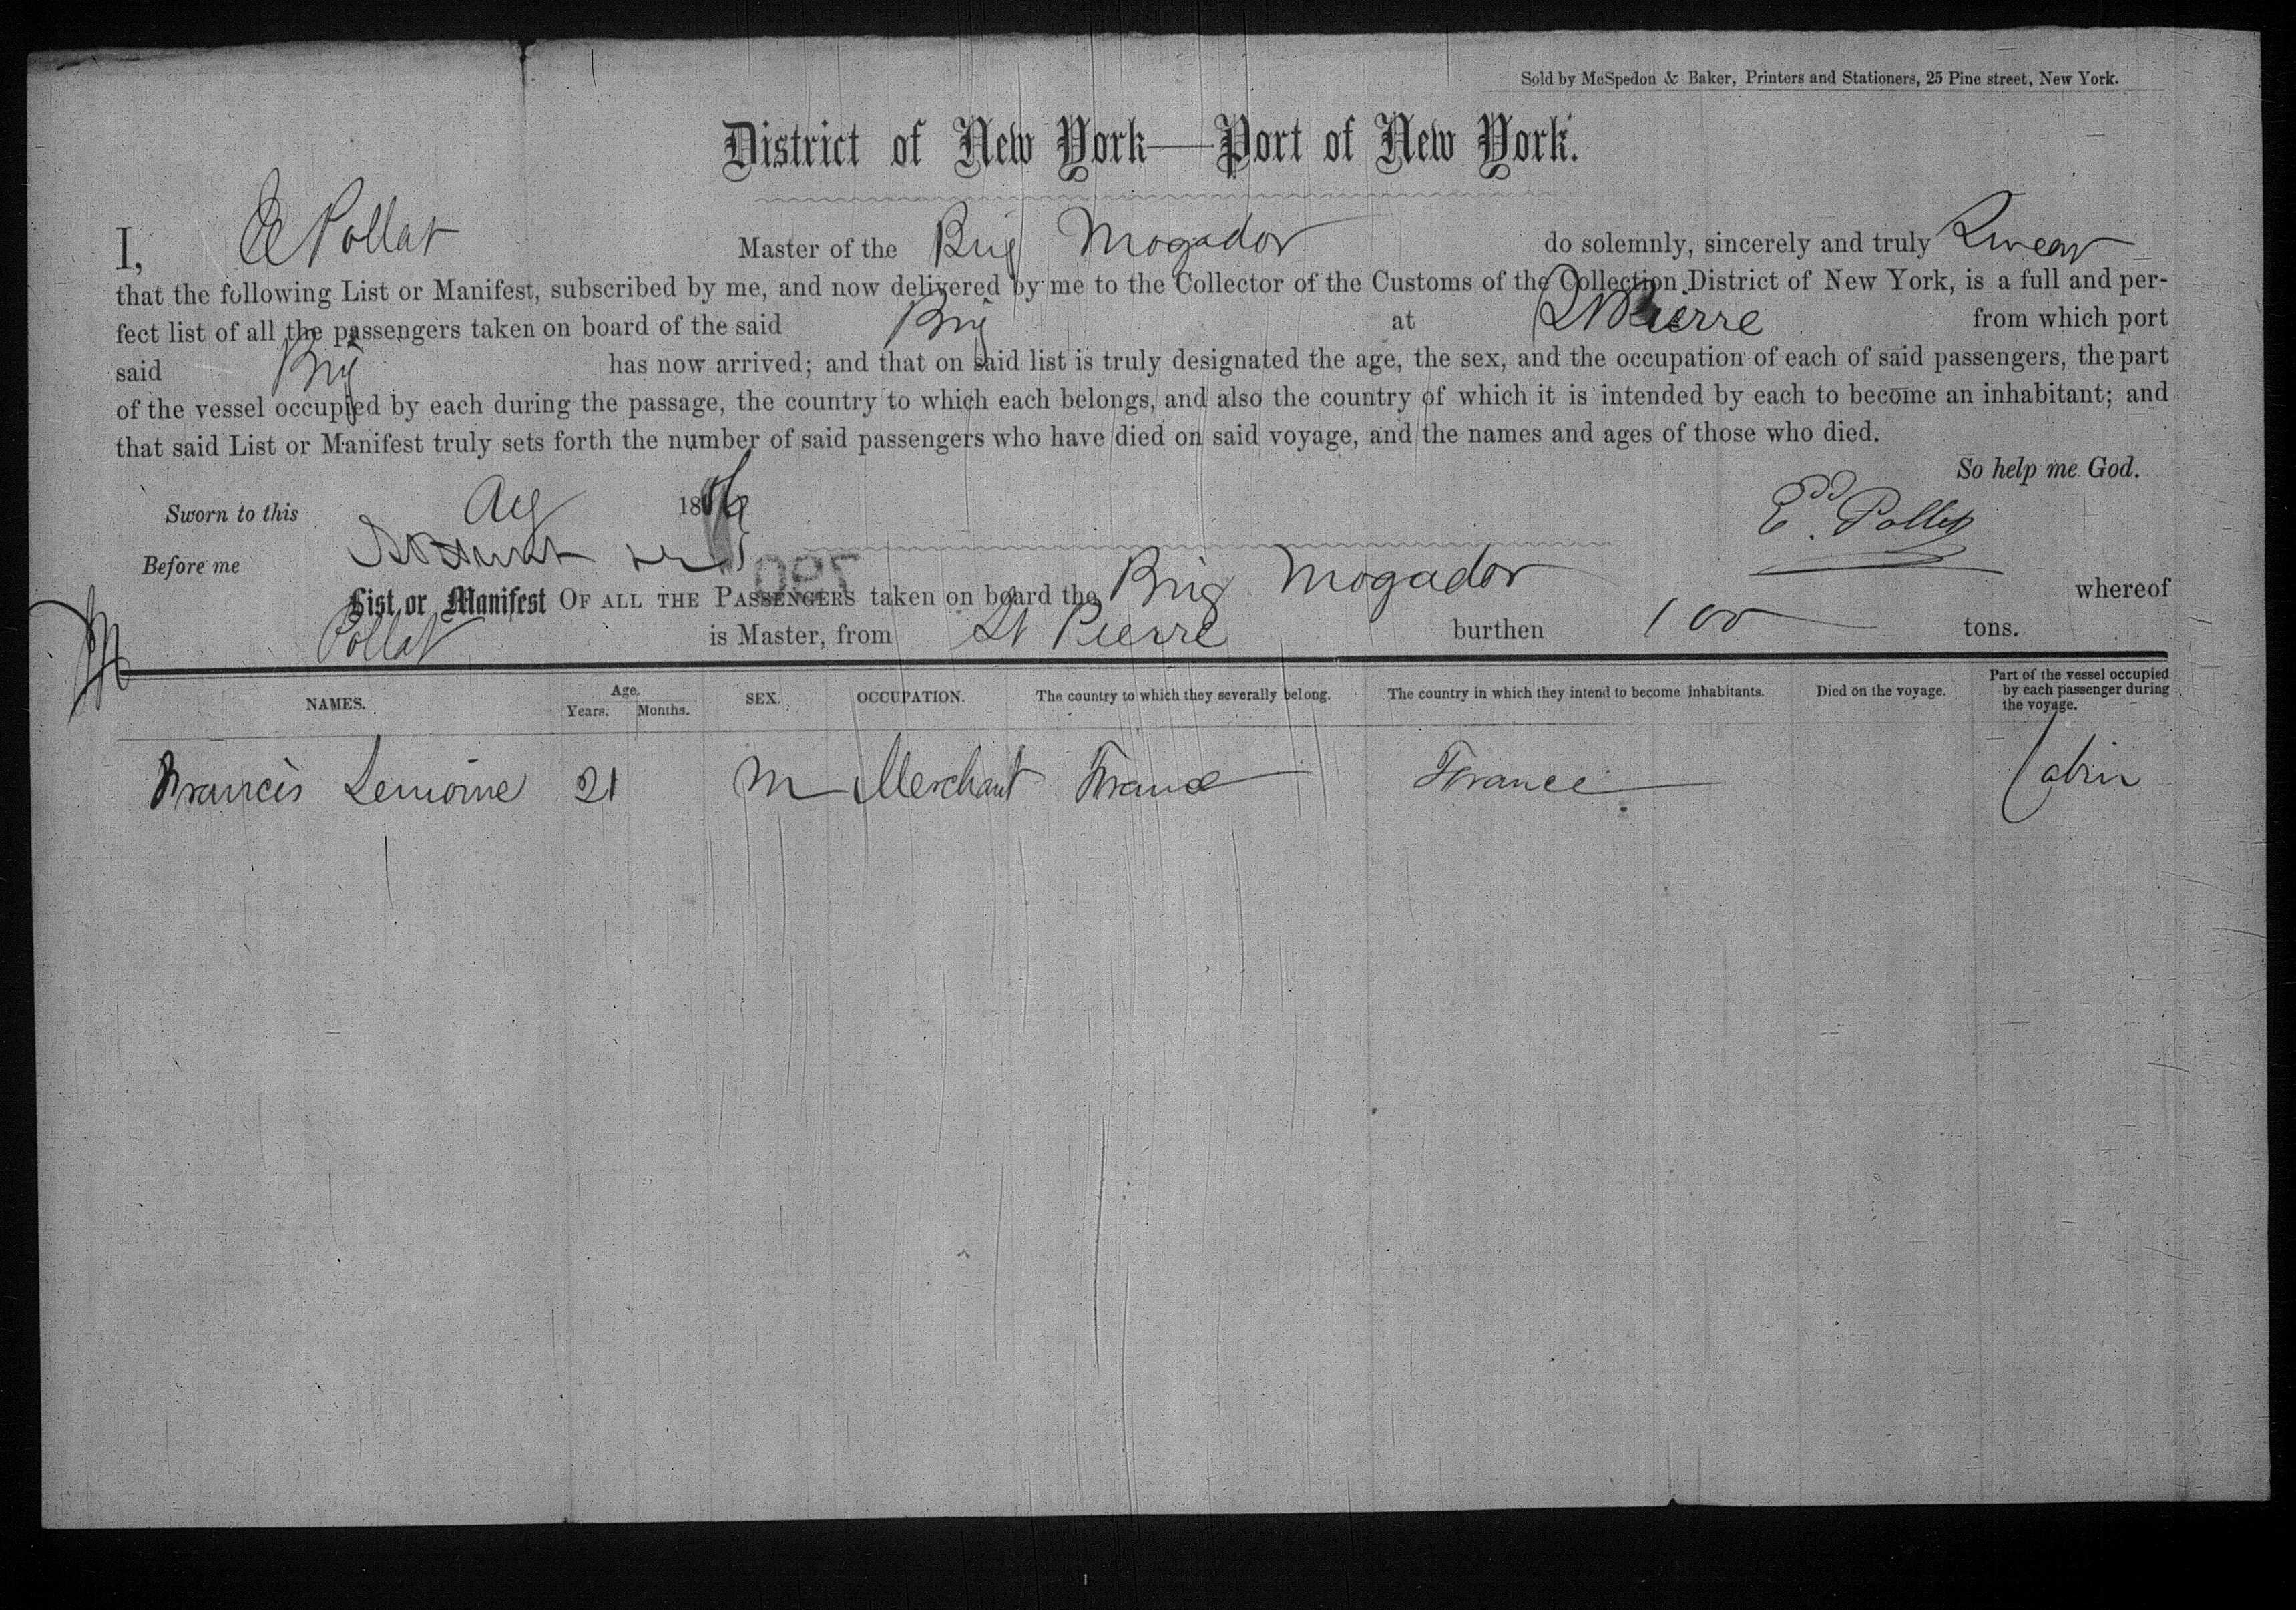 Sold by McSpedon & Baker, Printers and Stationers, 25 Pine street, New York.
District of New York—Port of New York.
I, E Pollat Master of the Brig Mogador do solemnly, sincerely and truly Swear
that the following List or Manifest, subscribed by me, and now delivered by me to the Collector of the Customs of the Collection District of New York, is a full and per-
fect list of all the passengers taken on board of the said Brig at St Pierre from which port
said Brig has now arrived; and that on said list is truly designated the age, the sex, and the occupation of each of said passengers, the part
of the vessel occupied by each during the passage, the country to which each belongs, and also the country of which it is intended by each to become an inhabitant; and
that said List or Manifest truly sets forth the number of said passengers who have died on said voyage, and the names and ages of those who died.
So help me God.
Sworn to this Aug 18
Before me
List or Manifest OF ALL THE PASSENGERS taken on board the Brig Mogador whereof
Pollat is Master, from St Pierre burthen 100 tons.
NAMES. Age. Years. Months. SEX. OCCUPATION. The country to which they severally belong. The country in which they intend to become inhabitants. Died on the voyage. Part of the vessel occupied by each passenger during the voyage.
Francis Lemoine 21 M Merchant France France Cabin